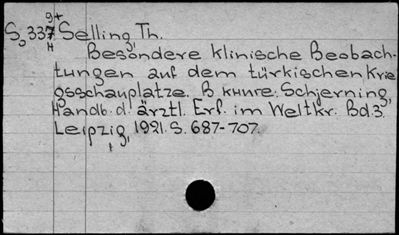 9+
S, 337 Selling, Th.
H
Besondere klinische Beobach-
tungen auf dem türkischen Krie
gsschauplatze. B Schjerning,
Handb. d. ärztl. Erf. im Weltkr. Bd.3.
Leipzig, 1921. S. 687-707.